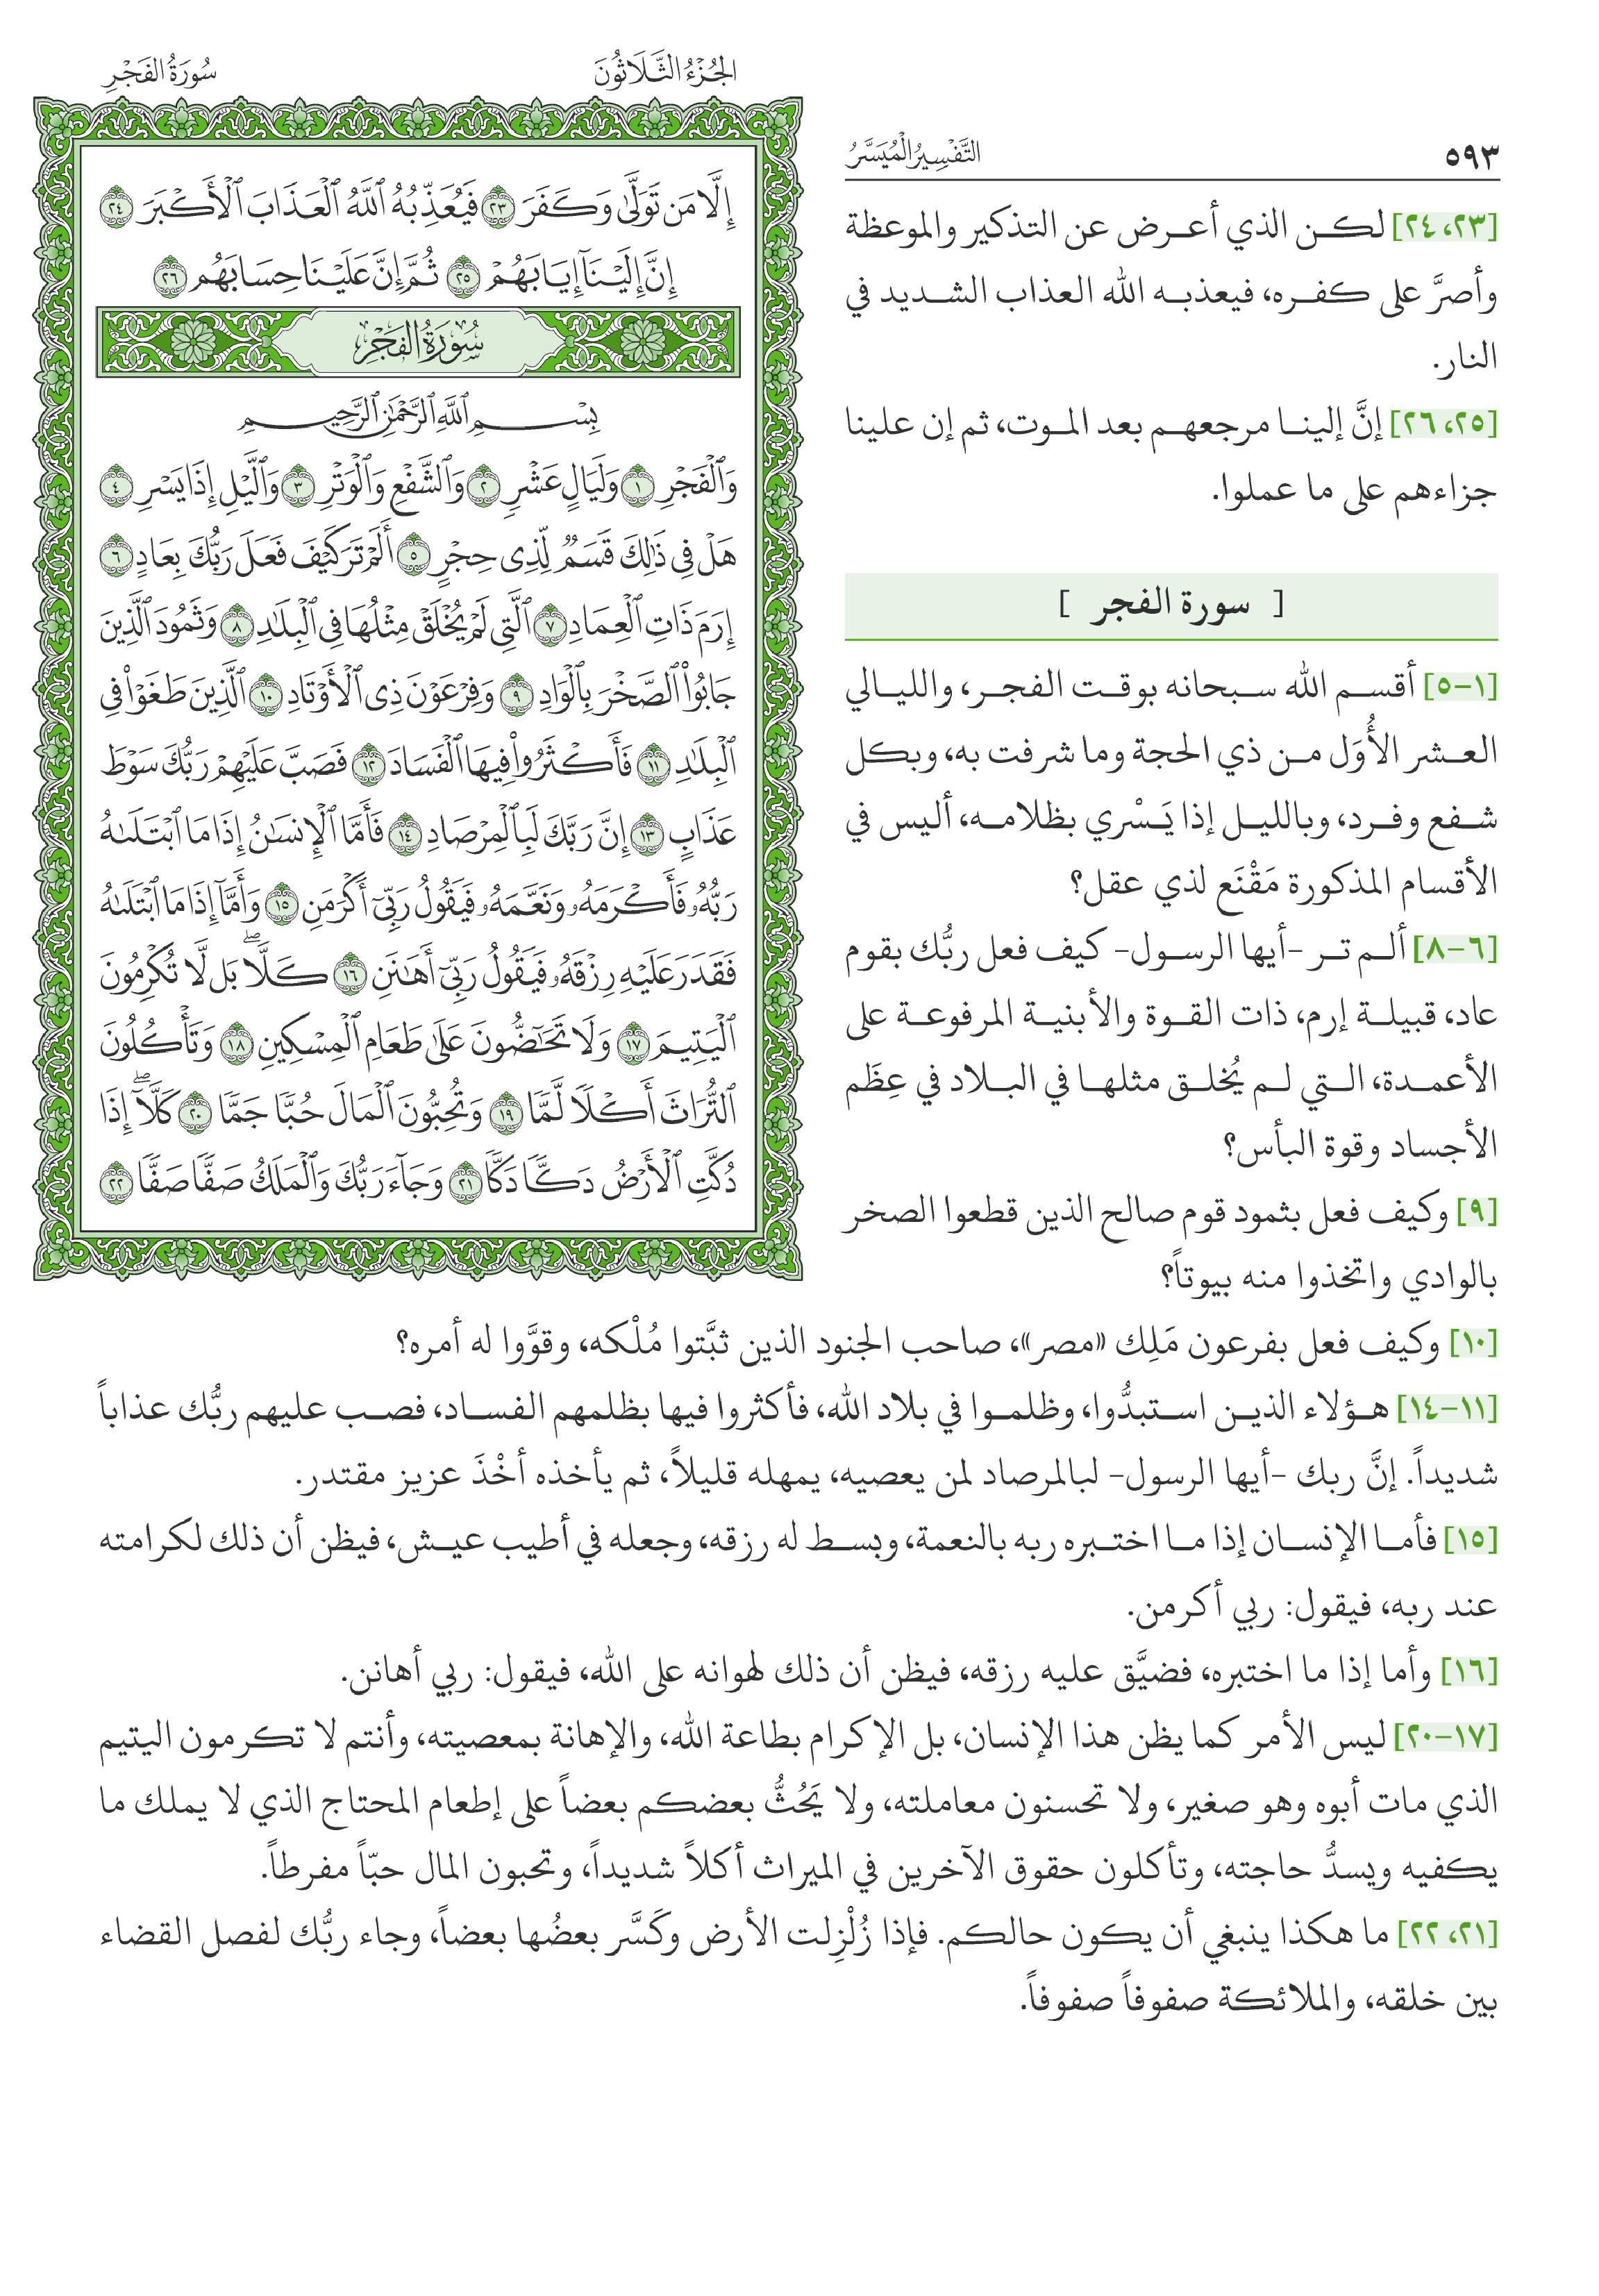 الجُزْءُ الثَّلَاثُونَ
سُورَةُ الفَجْرِ
إِلَّا مَن تَوَلَّىٰ وَكَفَرَ ٢٣ فَيُعَذِّبُهُ ٱللَّهُ ٱلْعَذَابَ ٱلْأَكْبَرَ ٢٤
إِنَّ إِلَيْنَآ إِيَابَهُمْ ٢٥ ثُمَّ إِنَّ عَلَيْنَا حِسَابَهُم ٢٦
سُورَةُ الفَجْرِ
بِسْمِ ٱللَّهِ ٱلرَّحْمَٰنِ ٱلرَّحِيمِ
وَٱلْفَجْرِ ١ وَلَيَالٍ عَشْرٍ ٢ وَٱلشَّفْعِ وَٱلْوَتْرِ ٣ وَٱلَّيْلِ إِذَا يَسْرِ ٤
هَلْ فِى ذَٰلِكَ قَسَمٌ لِّذِى حِجْرٍ ٥ أَلَمْ تَرَ كَيْفَ فَعَلَ رَبُّكَ بِعَادٍ ٦
إِرَمَ ذَاتِ ٱلْعِمَادِ ٧ ٱلَّتِى لَمْ يُخْلَقْ مِثْلُهَا فِى ٱلْبِلَٰدِ ٨ وَثَمُودَ ٱلَّذِينَ
جَابُوا۟ ٱلصَّخْرَ بِٱلْوَادِ ٩ وَفِرْعَوْنَ ذِى ٱلْأَوْتَادِ ١٠ ٱلَّذِينَ طَغَوْا۟ فِى
ٱلْبِلَٰدِ ١١ فَأَكْثَرُوا۟ فِيهَا ٱلْفَسَادَ ١٢ فَصَبَّ عَلَيْهِمْ رَبُّكَ سَوْطَ
عَذَابٍ ١٣ إِنَّ رَبَّكَ لَبِٱلْمِرْصَادِ ١٤ فَأَمَّا ٱلْإِنسَٰنُ إِذَا مَا ٱبْتَلَىٰهُ
رَبُّهُۥ فَأَكْرَمَهُۥ وَنَعَّمَهُۥ فَيَقُولُ رَبِّىٓ أَكْرَمَنِ ١٥ وَأَمَّآ إِذَا مَا ٱبْتَلَىٰهُ
فَقَدَرَ عَلَيْهِ رِزْقَهُۥ فَيَقُولُ رَبِّىٓ أَهَٰنَنِ ١٦ كَلَّا ۖ بَل لَّا تُكْرِمُونَ
ٱلْيَتِيمَ ١٧ وَلَا تَحَٰٓضُّونَ عَلَىٰ طَعَامِ ٱلْمِسْكِينِ ١٨ وَتَأْكُلُونَ
ٱلتُّرَاثَ أَكْلًا لَّمًّا ١٩ وَتُحِبُّونَ ٱلْمَالَ حُبًّا جَمًّا ٢٠ كَلَّآ ۖ إِذَا
دُكَّتِ ٱلْأَرْضُ دَكًّا دَكًّا ٢١ وَجَآءَ رَبُّكَ وَٱلْمَلَكُ صَفًّا صَفًّا ٢٢
٥٩٣
التَّفْسِيرُ الْمُيَسَّرُ
[٢٣، ٢٤] لكن الذي أعرض عن التذكير والموعظة
وأصرَّ على كفره، فيعذبه الله العذاب الشديد في
النار.
[٢٥، ٢٦] إنَّ إلينا مرجعهم بعد الموت، ثم إن علينا
جزاءهم على ما عملوا.
[ سورة الفجر ]
[١-٥] أقسم الله سبحانه بوقت الفجر، والليالي
العشر الأُوَل من ذي الحجة وما شرفت به، وبكل
شفع وفرد، وبالليل إذا يَسْري بظلامه، أليس في
الأقسام المذكورة مَقْنَع لذي عقل؟
[٦-٨] ألم تر -أيها الرسول- كيف فعل ربُّك بقوم
عاد، قبيلة إرم، ذات القوة والأبنية المرفوعة على
الأعمدة، التي لم يُخلق مثلها في البلاد في عِظَم
الأجساد وقوة البأس؟
[٩] وكيف فعل بثمود قوم صالح الذين قطعوا الصخر
بالوادي واتخذوا منه بيوتاً؟
[١٠] وكيف فعل بفرعون مَلِك «مصر»، صاحب الجنود الذين ثبَّتوا مُلْكه، وقوَّوا له أمره؟
[١١-١٤] هؤلاء الذين استبدُّوا، وظلموا في بلاد الله، فأكثروا فيها بظلمهم الفساد، فصب عليهم ربُّك عذاباً
شديداً. إنَّ ربك -أيها الرسول- لبالمرصاد لمن يعصيه، يمهله قليلاً، ثم يأخذه أخْذَ عزيز مقتدر.
[١٥] فأما الإنسان إذا ما اختبره ربه بالنعمة، وبسط له رزقه، وجعله في أطيب عيش، فيظن أن ذلك لكرامته
عند ربه، فيقول: ربي أكرمن.
[١٦] وأما إذا ما اختبره، فضيَّق عليه رزقه، فيظن أن ذلك لهوانه على الله، فيقول: ربي أهانن.
[١٧-٢٠] ليس الأمر كما يظن هذا الإنسان، بل الإكرام بطاعة الله، والإهانة بمعصيته، وأنتم لا تكرمون اليتيم
الذي مات أبوه وهو صغير، ولا تحسنون معاملته، ولا يَحُثُّ بعضكم بعضاً على إطعام المحتاج الذي لا يملك ما
يكفيه ويسدُّ حاجته، وتأكلون حقوق الآخرين في الميراث أكلاً شديداً، وتحبون المال حبّاً مفرطاً.
[٢١، ٢٢] ما هكذا ينبغي أن يكون حالكم. فإذا زُلْزِلت الأرض وكَسَّر بعضُها بعضاً، وجاء ربُّك لفصل القضاء
بين خلقه، والملائكة صفوفاً صفوفاً.